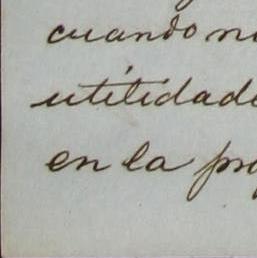 cuando n
utilidade
en la pro